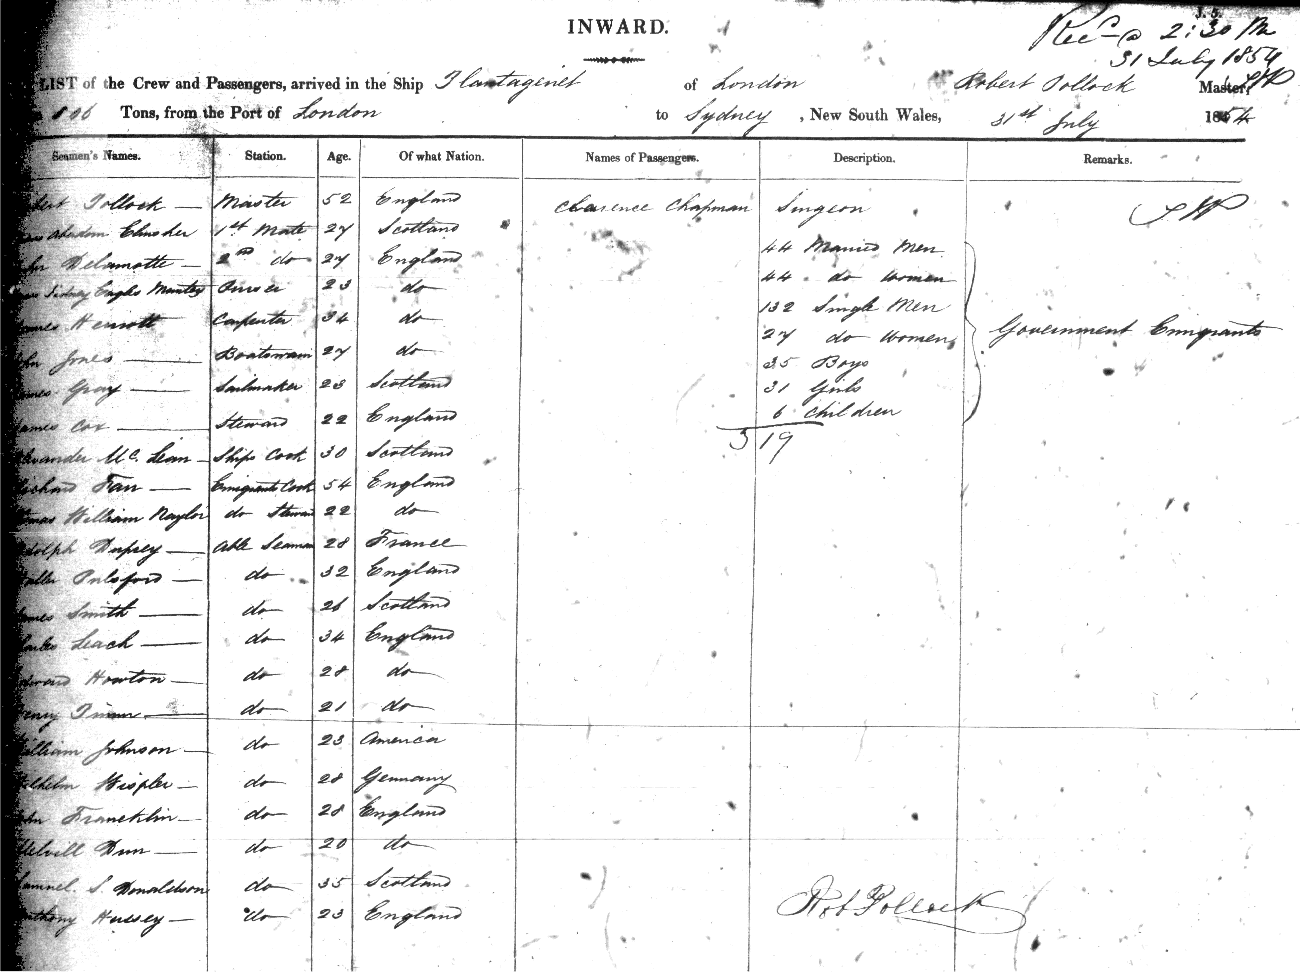 J. 5.
INWARD.
Recd @ 2:30 Pm
31 July 1854
LIST of the Crew and Passengers, arrived in the Ship Plantagenet of London Robert Pollock Master,
806 Tons, from the Port of London to Sydney, New South Wales, 31st July 1854
Seamen's Names. Station. Age. Of what Nation. Names of Passengers. Description. Remarks.
bert Pollock — Master 52 England
Clarence Chapman Surgeon
1st Mate 27 Scotland
44 Married Men
hn Delamotte — 2nd do 27 England
44 do Women
Sidney Purser 23 do
132 Single Men
ames Herriott Carpenter 34 do
27 do Women
Government Emigrants
hn Jones — Boatswain 27 do
35 Boys
mes Gray — Sailmaker 23 Scotland
31 Girls
ames Cox — Steward 22 England
6 Children
319
exander McLean — Ships Cook 30 Scotland
ichard Farr — Emigrants Cook 54 England
omas William Naylor do Steward 22 do
dolph Duprey — Able Seaman 28 France
alter Pulsford — do 32 England
ames Smith — do 26 Scotland
harles Leach — do 34 England
dward Howton — do 28 do
enry — do 21 do
illiam Johnson — do 23 America
ilhelm Hispler — do 28 Germany
ohn Francklin — do 28 England
elvill Dun — do 20 do
amuel S. Donaldson do 35 Scotland
nthony Hussey — do 23 England
Rob Pollock